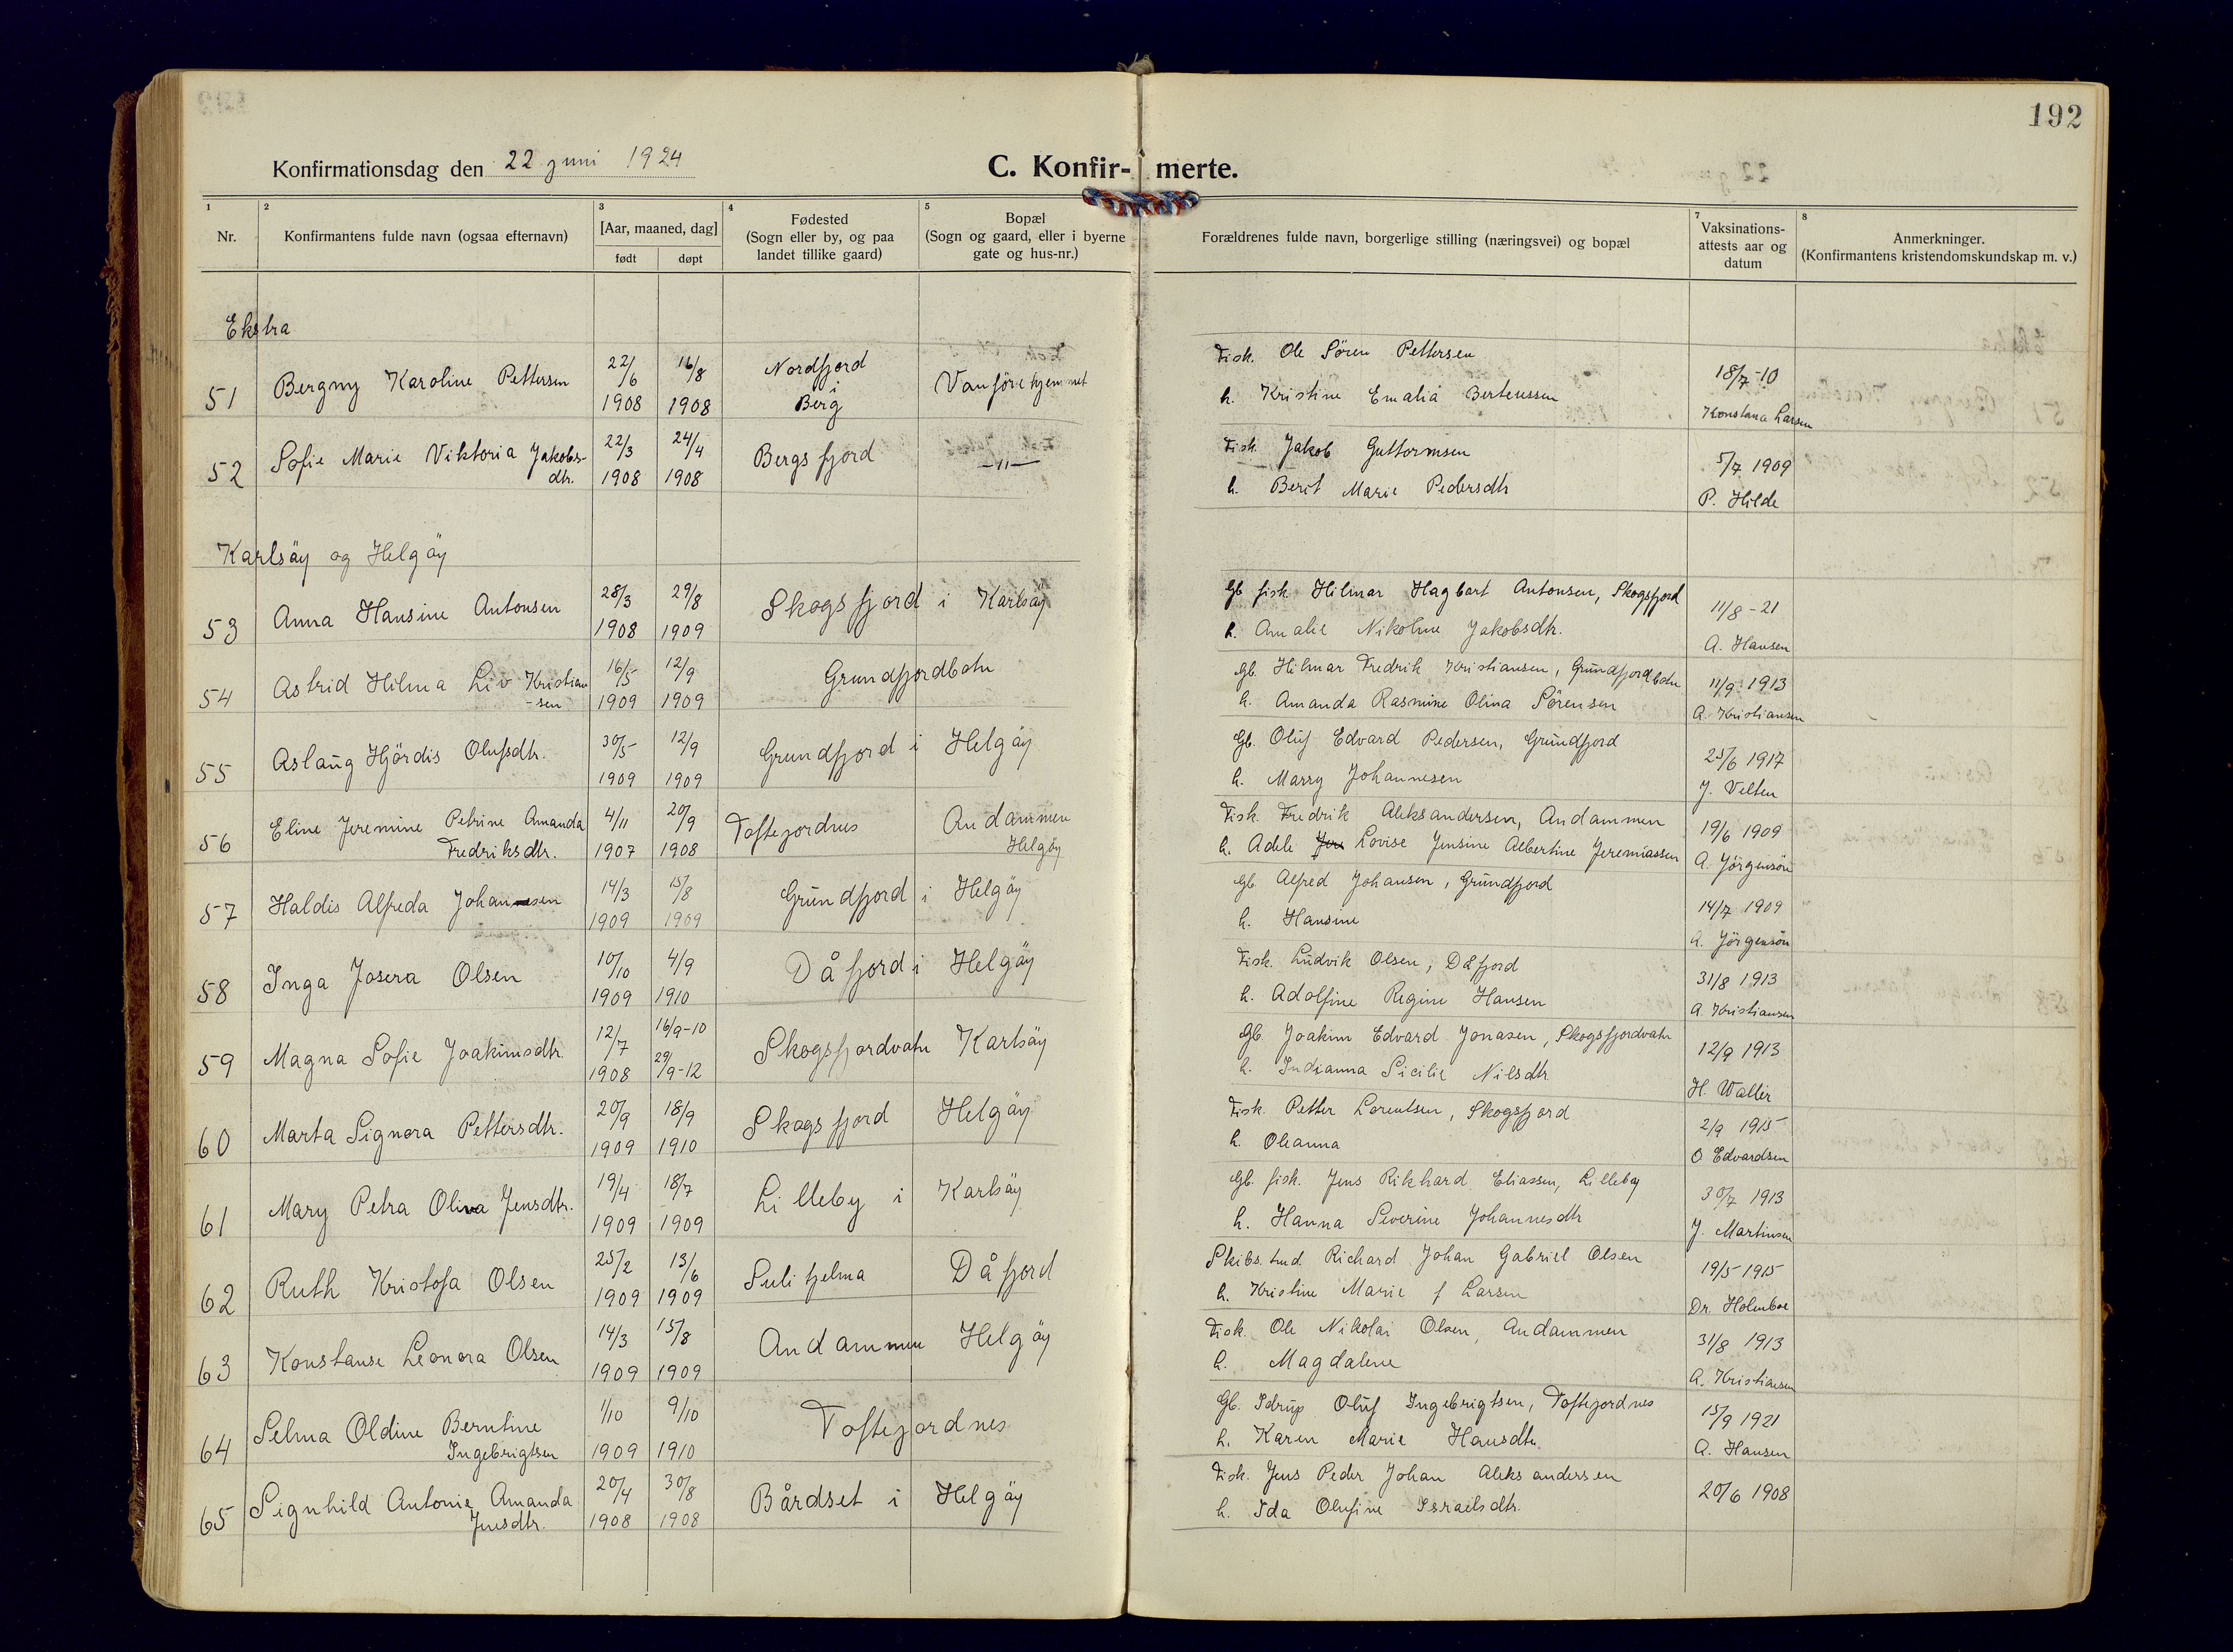 192
Konfirmationsdag den 22 juni 1924
C. Konfir- merte.
1 2 3 4 5 7 8
Nr. Konfirmantens fulde navn (ogsaa efternavn) [Aar, maaned, dag] født døpt Fødested (Sogn eller by, og paa landet tillike gaard) Bopæl (Sogn og gaard, eller i byerne gate og hus-nr.) Forældrenes fulde navn, borgerlige stilling (næringsvei) og bopæl Vaksinations-attests aar og datum Anmerkninger. (Konfirmantens kristendomskundskap m. v.)
Ekstra
51 Bergny Karoline Pettersen 22/6 1908 16/8 1908 Nordfjord i Berg Vanförehjemmet Fisk. Ole Sören Pettersen 18/7-10
h. Kristine Emalia Berteussen Konstanse Larsen
52 Sofie Marie Viktoria Jakobs-dtr. 22/3 1908 24/4 1908 Bergsfjord -"- Fisk. Jakob Guttormsen 5/7 1909
h. Berit Marie Pedersdtr P. Hilde
Karlsöy og Helgöy
53 Anna Hansine Antonsen 28/3 1908 29/8 1909 Skogsfjord i Karlsöy Gb fisk. Hilmar Hagbart Antonsen, Skogsfjord 11/8-21
h. Amalie Nikoline Jakobsdtr. A. Hansen
54 Astrid Hilma Liv Kristian-sen 16/5 1909 12/9 1909 Grundfjordbotn Gb. Hilmar Fredrik Kristiansen, Grundfjordbotn 11/9 1913
h. Amanda Rasmine Olina Sörensen A. Kristiansen
55 Aslaug Hjördis Olufsdtr. 30/5 1909 12/9 1909 Grundfjord i Helgöy Gb. Oluf Edvard Pedersen, Grundfjord 25/6 1917
h. Marry Johannesen J. Velten
56 Eline Jeremine Petrine Amanda Fredriksdtr. 4/11 1907 20/9 1908 Toftefjordnes Andammen Helgöy Fisk. Fredrik Aleksandersen, Andammen 19/6 1909
h. Adele Jere Lovise Jensine Albertine Jeremiassen A. Jörgensön
57 Haldis Alfreda Johansen 14/3 1909 15/8 1909 Grundfjord i Helgöy Gb. Alfred Johansen, Grundfjord 14/7 1909
h. Hansine A. Jörgensön
58 Inga Josera Olsen 10/10 1909 4/9 1910 Dåfjord i Helgöy Fisk. Ludvik Olsen, Dåfjord 31/8 1913
h. Adolfine Regine Hansen A. Kristiansen
59 Magna Sofie Joakimsdtr. 12/7 1908 16/9-10 29/9-12 Skogsfjordvatn Karlsöy Gb. Joakim Edvard Jonasen, Skogsfjordvatn 12/9 1913
h. Indianna Sicilie Nilsdtr. H. Waller
60 Marta Signora Pettersdtr. 20/9 1909 18/9 1910 Skogsfjord Helgöy Fisk. Petter Lorentsen, Skogsfjord 2/9 1915
h. Oleanna O Edvardsen
61 Mary Petra Oliva Jensdtr. 19/4 1909 18/7 1909 Lilleby i Karlsöy Gb. fisk. Jens Rikhard Eliassen, Lilleby 30/7 1913
h. Hanna Severine Johannesdtr J. Martinsen
62 Ruth Kristofa Olsen 25/2 1909 13/6 1909 Sulitjelma Dåfjord Skibs. tmd. Richard Johan Gabriel Olsen 19/5 1915
h. Kristine Marie f Larsen Dr. Holmboe
63 Konstanse Leonora Olsen 14/3 1909 15/8 1909 Andammen Helgöy Fisk. Ole Nikolai Olsen, Andammen 31/8 1913
h. Magdalene A. Kristiansen
64 Selma Oldine Berntine Ingebrigtsen 1/10 1909 9/10 1910 Toftefjordnes Gb. Idrup Oluf Ingebrigtsen, Toftefjordnes 15/9 1921
h. Karen Marie Hansdtr. A. Hansen
65 Signhild Antonie Amanda Jensdtr. 20/4 1908 30/8 1908 Bårdset i Helgöy Fisk. Jens Peder Johan Aleksandersen 20/6 1908
h. Ida Olufine Israelsdtr.